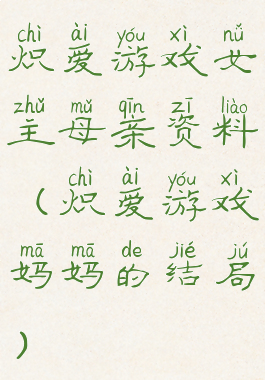 chì ài yóu xì nǚ
炽爱游戏女
zhǔ mǔ qīn zī liào
主母亲资料
chì ài yóu xì
(炽爱游戏
mā mā de jié jú
妈妈的结局
)